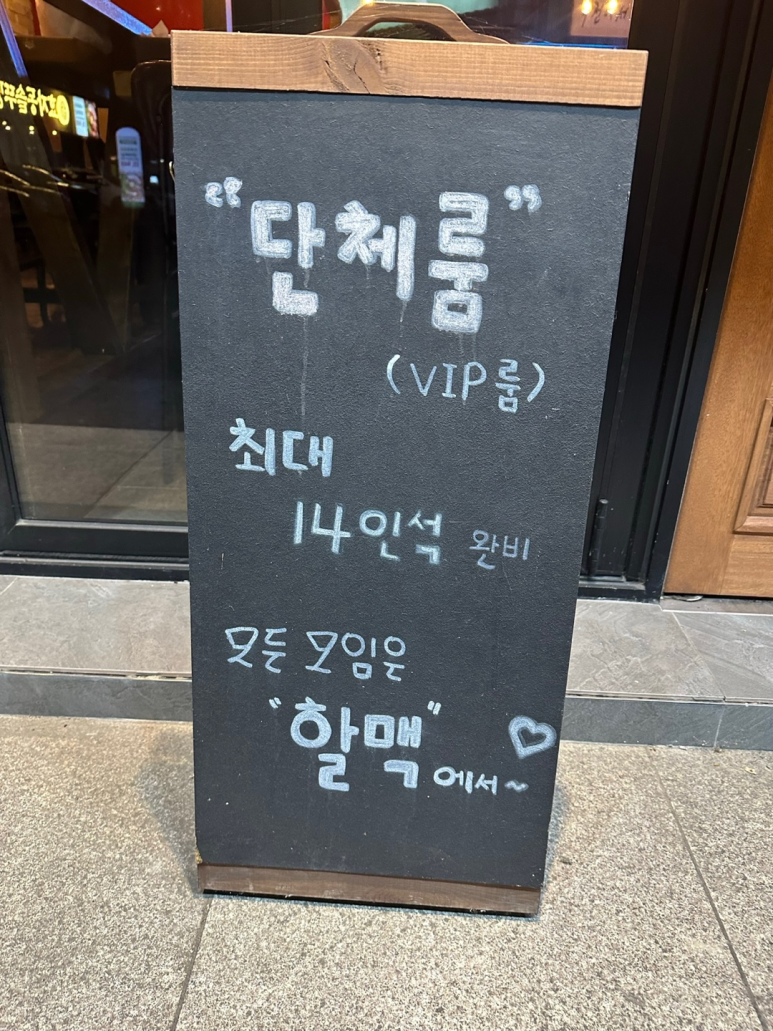 "단체룸"
(VIP룸)
최대
14인석 완비
모든 모임은
"할맥"에서~